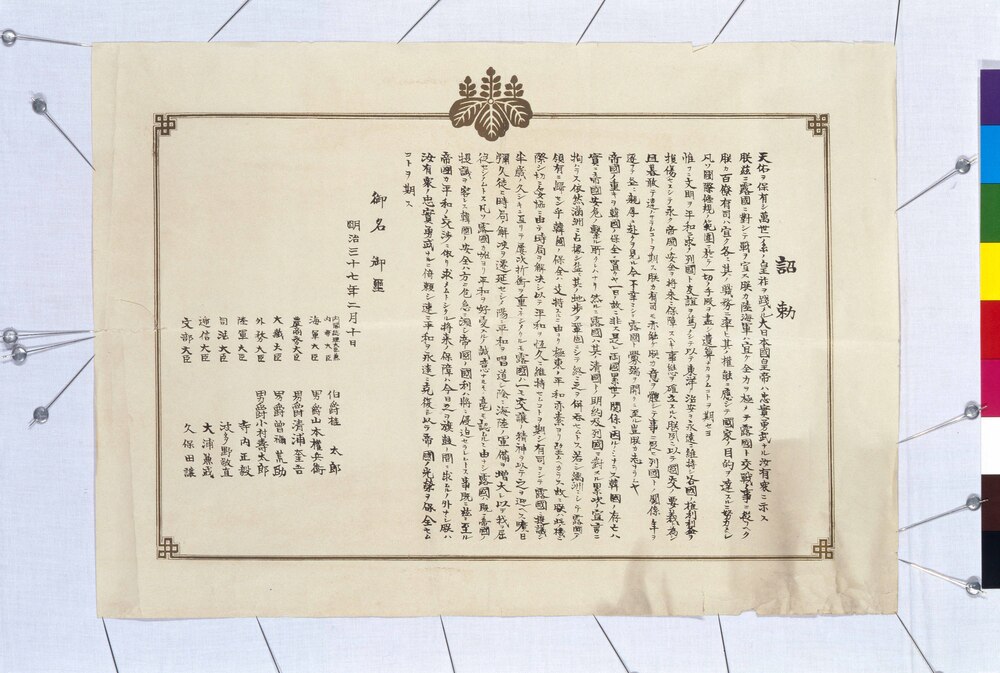 詔勅
天佑ヲ保有シ萬世一系ノ皇祚ヲ踐メル大日本國皇帝ハ忠實勇武ナル汝有衆ニ示ス
朕茲ニ露國ニ對シテ戰ヲ宣ス朕カ陸海軍ハ宜ク全力ヲ極メテ露國ト交戰ノ事ニ從フヘク
朕カ百僚有司ハ宜ク各々其ノ職務ニ率ヒ其ノ權能ニ應シテ國家ノ目的ヲ達スルニ努力スヘシ
凡ソ國際條規ノ範圍ニ於テ一切ノ手段ヲ盡シ遺算ナカラムコトヲ期セヨ
惟フニ文明ヲ平和ニ求メ列國ト友誼ヲ篤クシテ以テ東洋ノ治安ヲ永遠ニ維持シ各國ノ權利利益ヲ
損傷セスシテ永ク帝國ノ安全ヲ將來ニ保障スヘキ事態ヲ確立スルハ朕夙ニ以テ國交ノ要義ト爲シ
旦暮敢テ違ハサラムコトヲ期ス朕カ有司モ亦能ク朕カ意ヲ體シテ事ニ從ヒ列國トノ關係年ヲ
逐フテ益々親厚ニ赴クヲ見ル今不幸ニシテ露國ト釁端ヲ開クニ至ル豈朕カ志ナラムヤ
帝國ノ重ヲ韓國ノ保全ニ置クヤ一日ノ故ニ非ス是レ兩國累世ノ關係ニ因ルノミナラス韓國ノ存亡ハ
實ニ帝國安危ノ繫ル所タレハナリ然ルニ露國ハ其ノ清國トノ明約及列國ニ對スル累次ノ宣言ニ
拘ハラス依然滿洲ニ占據シ益々其ノ地歩ヲ鞏固ニシテ終ニ之ヲ併呑セムトス若シ滿洲ニシテ露國ノ
領有ニ歸セン乎韓國ノ保全ハ支持スルニ由ナク極東ノ平和亦素ヨリ望ムヘカラス故ニ朕ハ此ノ機ニ
際シ切ニ妥協ニ由テ時局ヲ解決シ以テ平和ヲ恆久ニ維持セムコトヲ期シ有司ヲシテ露國ニ提議シ
半歳ノ久シキニ亙リテ屢次折衝ヲ重ネシメタルモ露國ハ一モ交讓ノ精神ヲ以テ之ヲ迎ヘス曠日
彌久徒ニ時局ノ解決ヲ遷延セシメ陽ニ平和ヲ唱道シ陰ニ海陸ノ軍備ヲ增大シ以テ我ヲ屈
從セシメムトス凡ソ露國カ始ヨリ平和ヲ好愛スルノ誠意ナルモノ毫モ認ムルニ由ナシ露國ハ既ニ帝國ノ
提議ヲ容レス韓國ノ安全ハ方ニ危急ニ瀕シ帝國ノ國利ハ將ニ侵迫セラレムトス事既ニ茲ニ至ル
帝國カ平和ノ交渉ニ依リ求メムトシタル將來ノ保障ハ今日之ヲ旗鼓ノ間ニ求ムルノ外ナシ朕ハ
汝有衆ノ忠實勇武ナルニ倚賴シ速ニ平和ヲ永遠ニ克復シ以テ帝國ノ光榮ヲ保全セム
コトヲ期ス
御名御璽
明治三十七年二月十日
內閣總理大臣兼
內務大臣 伯爵桂太郎
海軍大臣 男爵山本權兵衛
農商務大臣 男爵淸浦奎吾
大藏大臣 男爵曾禰荒助
外務大臣 男爵小村壽太郎
陸軍大臣 寺內正毅
司法大臣 波多野敬直
遞信大臣 大浦兼武
文部大臣 久保田讓